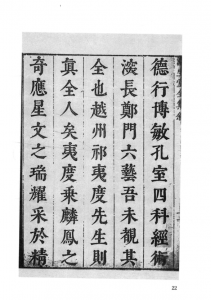 德行博敏孔室四科經術
淡長鄭門六藝吾未觀其
全也越州祁夷度先生則
眞全人矣夷度乗麟鳳之
奇應星文之瑞耀采於精
22